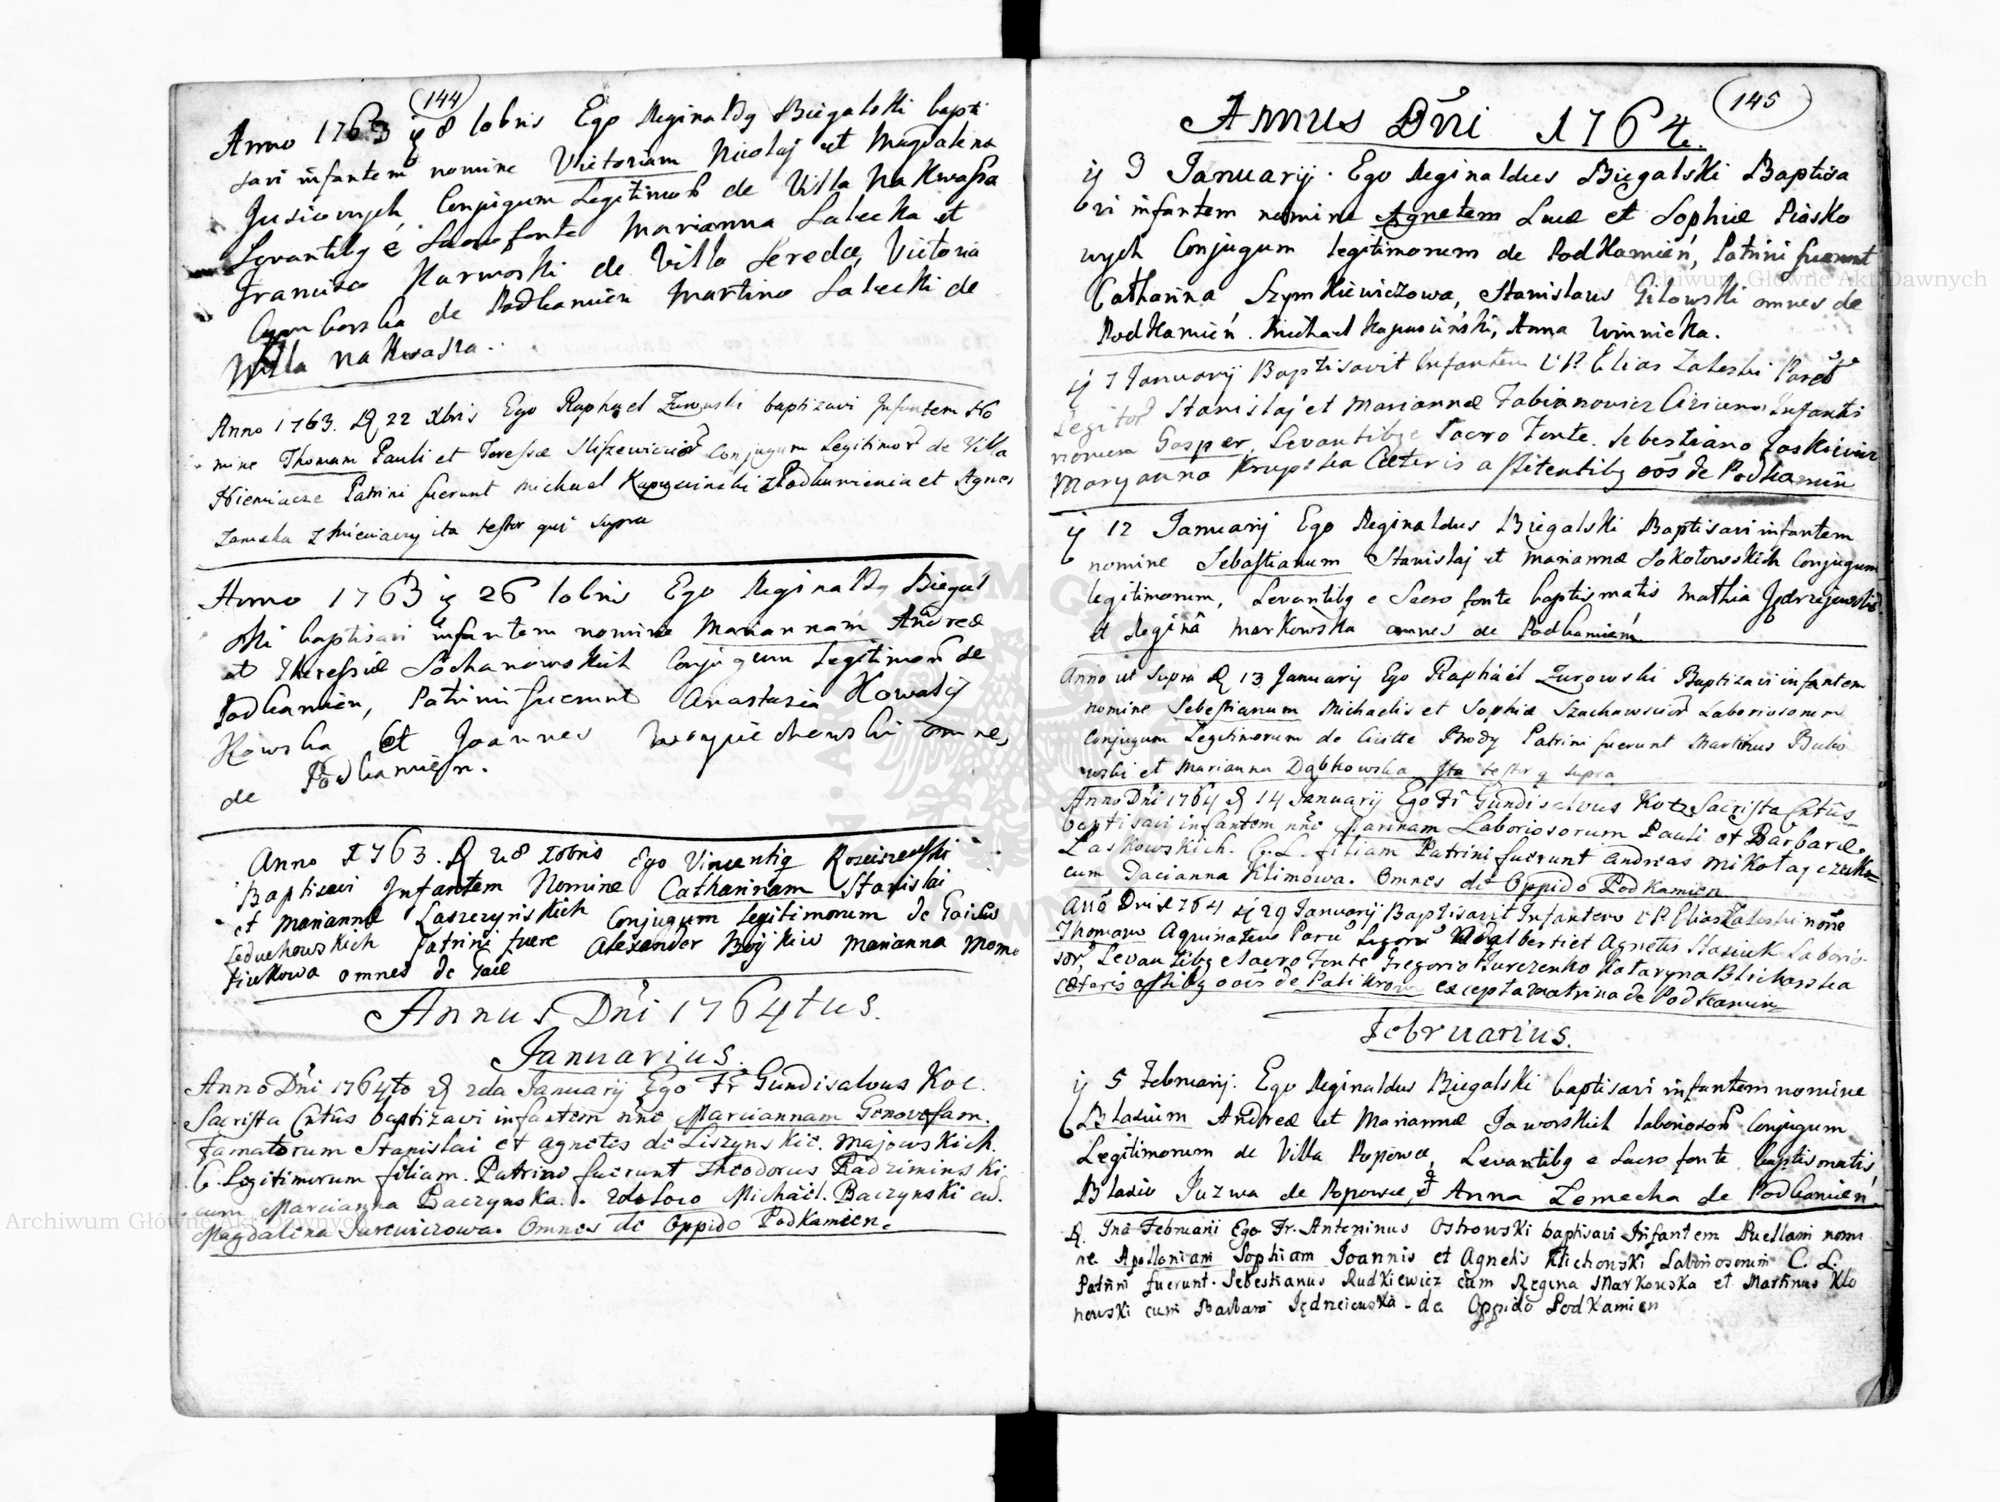 144
Anno 1763 ij 8 10bris Ego Reginaldq Biegalski bapti
savi infantem nomine Victoriam Nicolaj et Magdalena
Conjugum Legitimor de Villa Nakwassa
Levantibq è Sacro fonte Marianna Salecka et
Francisco Karwoski de Villa Seredce, Victoria
de Podkamien Martino Salecki de
Villa nakwasza.
Anno 1763. D 22 Xbris Ego Raphael Zurowski baptizavi Infantem No
mine Thomam Pauli et Teressæ Conjugum Legitimor de Villa
Hieniacze Patrini fuerunt Michael Kapuscinski z Podkamienia et Agnes
Zamska z Hieniaczy ita testor qui supra
Anno 1763 ij 26 10bris Ego Reginaldq Biegal
ski baptisavi infantem nomine Mariannam Andreæ
et Theressiæ Sochanowskich Conjugum Legitimor de
Podkamien, Patrini fuerunt Anastasia Kowalij
kowska et Joannes Woyciechowski omnes
de Podkamien.
Anno 1763. D 28 Xbris Ego Vincentiq Rosciszewski
Baptisavi Infantem Nomine Catharinam Stanislai
et Mariannæ Laszczynskich Conjugum legitimorum de
Leduchowskich Patrini fuere Alexander Boijkiw Marianna Momo
tiukowa omnes de Gaie
Annus Dni 1764tus.
Januarius.
Anno Dni 1764to D 2da Januarij Ego Fr Gundisalvus Koc.
Sacrista Cntûs baptizavi infantem nne Marciannam Genovefam.
Famatorum Stanislai et Agnetes de Liszynskie. Majowskich.
C. Legitimorum filiam. Patrini fuerunt Theodorus Radziminski
cum Marcianna Baczynska. 2do Loco Michäel. Baczynski cu.
Magdalena Jurewiczowa. Omnes de Oppido Podkamien.
145
Annus Dni 1764.
ij 3 Januarij. Ego Reginaldus Biegalski Baptisa
vi infantem nomine Agnetem Lucæ et Sophiæ Piasko
wych Conjugum legitimorum de Podkamień, Patrini fuerunt
Catharina Szymkiewiczowa, Stanislaus Gilowski omnes de
Podkamień. Michael Kapusciński, Anna Winnicka.
ij 7 Januarij Baptisavit Infantem V P. Elias Zaleski
Legitor Stanislaj et Mariannæ Fabianowicz Infanti
nomen Gasper, Levantibq e Sacro Fonte. Sebestiano Laskiewicz
Maryanna Krupska Cæteris assistentibq oōs de Podkamien
ij 12 Januarij Ego Reginaldus Biegalski Baptisavi infantem
nomine Sebastianum Stanislaj et Mariannæ Sokołowskich Conjugum
legitimorum, Levantibq e Sacro fonte baptismatis Mathia
et Reginâ Markowska omnes de Podkamień
Anno ut Supra D 13 Januarij Ego Raphäel Zurowski Baptizavi infantem
nomine Sebestianum Michaelis et Sophiæ Laboriosorum
Conjugum Legitimorum de Brody Patrini fuerunt Martinus Buko
wski et Marianna Dąbkowska Ita testor q supra
Anno Dni 1764 D 14 Januarij Ego Fr Gundisalvus Kotz Sacrista Cntûs
baptisavi infantem nne Marinam Laboriosorum Pauli et Barbaræ.
Laskowskich. C. L. filiam Patrini fuerunt Andreas Mikołayczuk
cum Dacianna Klimowa. Omnes de Oppido Podkamien
Año Dni 1764 ij 29 Januarij Baptisavit Infantem V P. Elias Zaleski noñe
Thomam Aquinatem Adalberti et Agnetis Stasiuk Laborio
sor, Levantibq e Sacro Fonte Gregorio Jurczenko Kataryna Blichoska
cæteris assibq oōis de Palikrow excepta matrina de Podkamien
Februarius.
ij 5 Februarij. Ego Reginaldus Biegalski baptisavi infantem nomine
Blasium Andreæ et Mariannæ Jaworskich laboriosor Conjugum
Legitimorum de Villa Popowce, Levantibq e Sacro fonte baptismatis
Blasio Juzwa de Popowce, et Anna Zemecha de Podkamień
D. Februarii Ego Fr. Antoninus Ostrowski baptisavi Infantem Puellam nomi
ne Apolloniam Sophiam Joannis et Agnetis Klichonski Laboriosorum C. L.
Patrini fuerunt. Sebestianus Rudkiewicz cum Regina Markouska et Martinus Klo
nowski cum Barbara Jędrzieiewska - de Oppido Podkamien
Archiwum Główne Akt Dawnych
Archiwum Główne Akt Dawnych